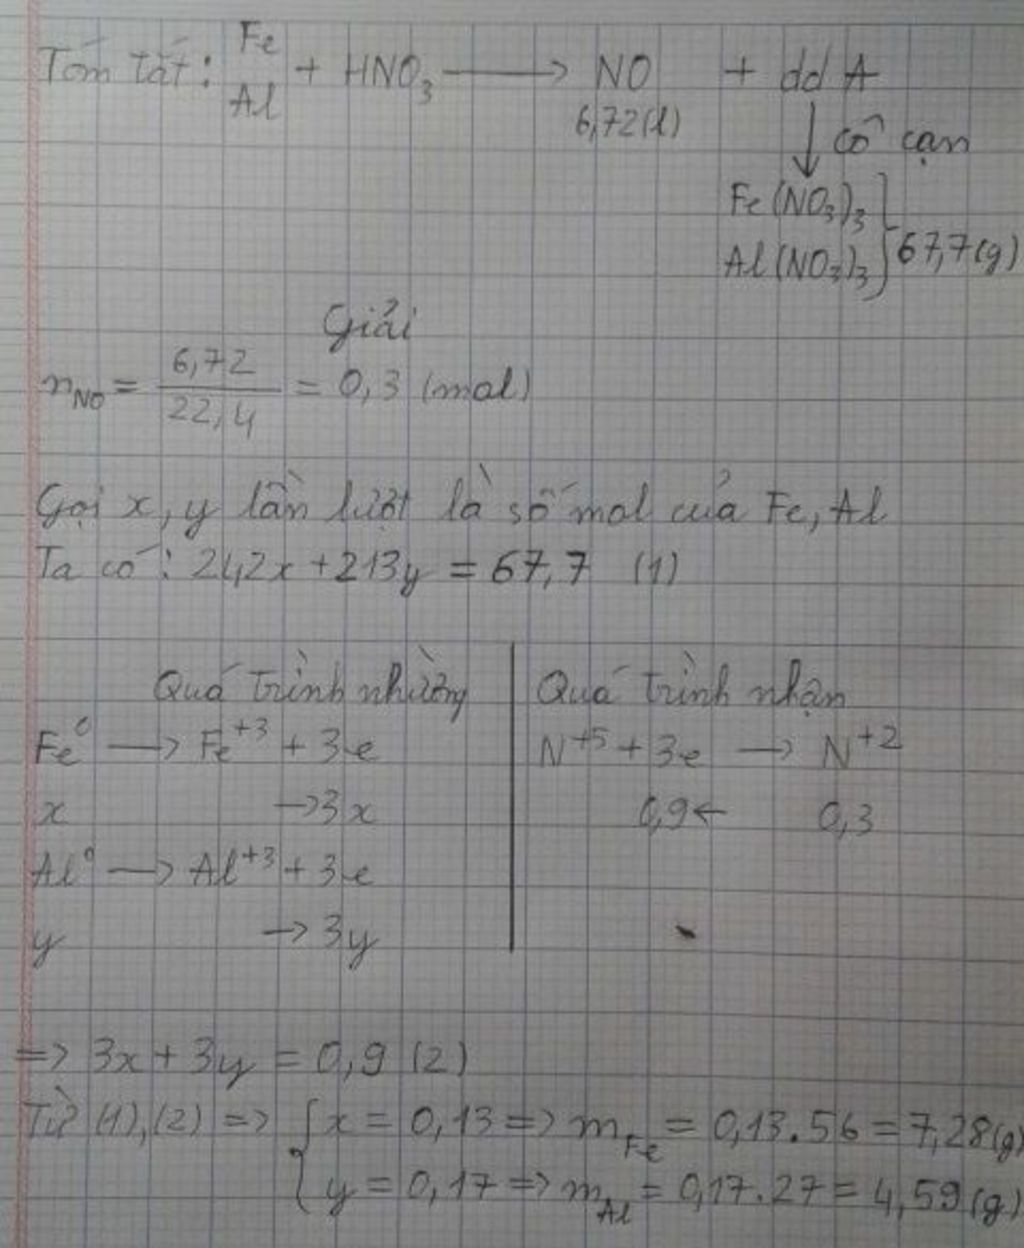 Tóm tắt: Fe
Al + HNO₃ → NO + dd A
6,72(l) ↓ cô cạn
Fe(NO₃)₃
Al(NO₃)₃ } 67,7(g)
Giải
n_NO = 6,72/22,4 = 0,3 (mol)
Gọi x, y lần lượt là số mol của Fe, Al
Ta có: 242x + 213y = 67,7 (1)
Quá trình nhường | Quá trình nhận
Fe⁰ → Fe⁺³ + 3e | N⁺⁵ + 3e → N⁺²
x → 3x | 0,9 ← 0,3
Al⁰ → Al⁺³ + 3e
y → 3y
=> 3x + 3y = 0,9 (2)
Từ (1), (2) => { x = 0,13 => m_Fe = 0,13.56 = 7,28(g)
y = 0,17 => m_Al = 0,17.27 = 4,59(g)